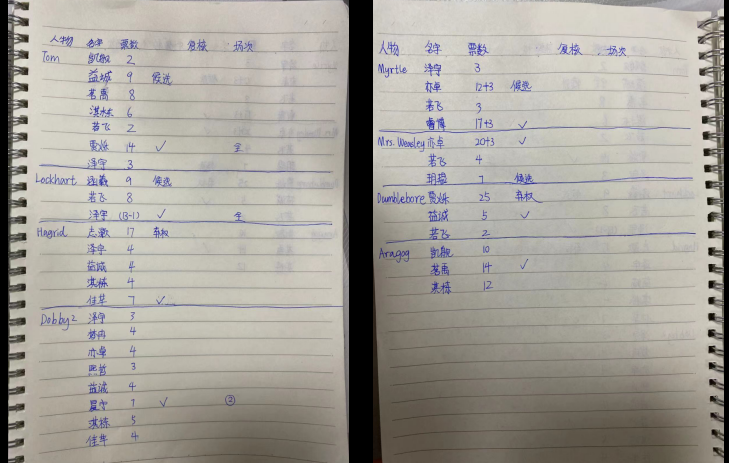 人物 名字 票数 复核 场次
Tom 凯敏 2
益城 9 候选
茗禹 8
淇栋 6
若飞 2
贾烁 14 ✓ 全
泽宇 3
Lockhart 9 候选
若飞 8
泽宇 (13-1) ✓ 全
Hagrid 志澈 17 弃权
泽宇 4
益诚 4
淇栋 4
佳苹 7 ✓
Dobby2 泽宇 3
4
亦卓 4
熙哲 3
益诚 4
晨宁 7 ✓ ②
淇栋 5
佳苹 4
人物 名字 票数 复核 场次
Myrtle 泽宇 3
亦卓 12+3 候选
若飞 3
睿博 17+3 ✓
Mrs. Weasley 亦卓 20+3 ✓
若飞 4
7 候选
Dumblebore 贾烁 25 弃权
益诚 5 ✓
若飞 2
Aragog 凯 10
茗禹 14 ✓
淇栋 12